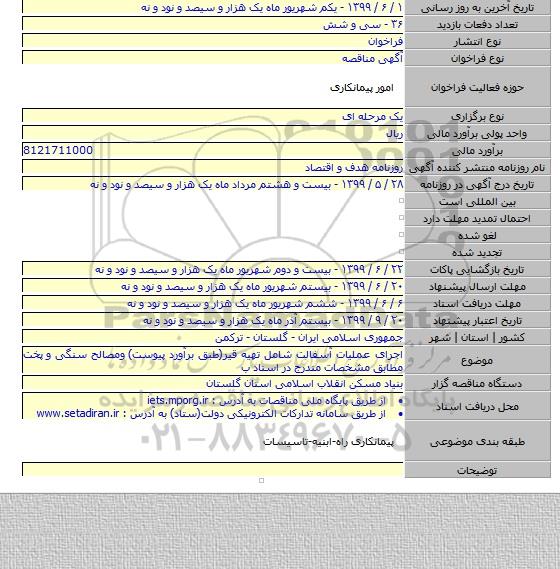 تاریخ آخرین به روز رسانی ۱ / ۶ / ۱۳۹۹ - یکم شهریور ماه یک هزار و سیصد و نود و نه
تعداد دفعات بازدید ۳۶ - سی و شش
نوع انتشار فراخوان
نوع فراخوان آگهی مناقصه
حوزه فعالیت فراخوان امور پیمانکاری
نوع برگزاری یک مرحله ای
واحد پولی برآورد مالی ریال
برآورد مالی 8121711000
نام روزنامه منتشر کننده آگهی روزنامه هدف و اقتصاد
تاریخ درج آگهی در روزنامه ۲۸ / ۵ / ۱۳۹۹ - بیست و هشتم مرداد ماه یک هزار و سیصد و نود و نه
بین المللی است
احتمال تمدید مهلت دارد
لغو شده
تجدید شده
تاریخ بازگشایی پاکات ۲۲ / ۶ / ۱۳۹۹ - بیست و دوم شهریور ماه یک هزار و سیصد و نود و نه
مهلت ارسال پیشنهاد ۲۰ / ۶ / ۱۳۹۹ - بیستم شهریور ماه یک هزار و سیصد و نود و نه
مهلت دریافت اسناد ۶ / ۶ / ۱۳۹۹ - ششم شهریور ماه یک هزار و سیصد و نود و نه
تاریخ اعتبار پیشنهاد ۲۰ / ۹ / ۱۳۹۹ - بیستم آذر ماه یک هزار و سیصد و نود و نه
کشور | استان | شهر جمهوری اسلامی ایران - گلستان - ترکمن
موضوع اجرای عملیات آسفالت شامل تهیه قیر(طبق برآورد پیوست) ومصالح سنگی و پخت
مطابق مشخصات مندرج در اسناد ب
دستگاه مناقصه گزار بنیاد مسکن انقلاب اسلامی استان گلستان
محل دریافت اسناد از طریق پایگاه ملی مناقصات به آدرس : iets.mporg.ir
از طریق سامانه تدارکات الکترونیکی دولت(ستاد) به آدرس : www.setadiran.ir
طبقه بندی موضوعی پیمانکاری راه-ابنیه-تاسیسات
توضیحات
۰۲۱-۸۸۳۴۹۶۷۰-۵